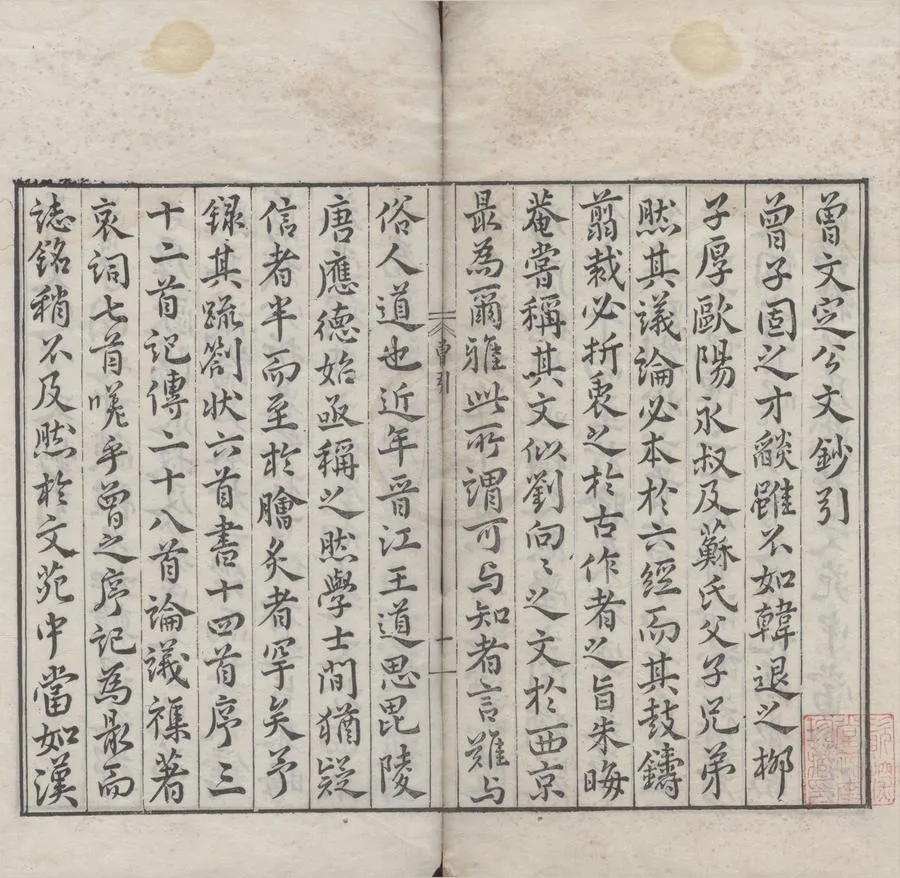 曾文定公文鈔引
曾子固之才燄雖不如韓退之柳
子厚歐陽永叔及蘇氏父子兄弟
然其議論必本於六經而其鼓鑄
剪裁必折衷之於古作者之旨朱晦
菴嘗稱其文似劉向〻之文於西京
最為爾雅此所謂可与知者言難与
曾引
一
俗人道也近年晉江王道思毘陵
唐應德始亟稱之然學士閒猶疑
信者半而至於膾炙者罕矣予
録其疏劄狀六首書十四首序三
十二首記傳二十八首論議襍著
哀詞七首嗟乎曾之序記為最而
誌銘稍不及然於文苑中當如漢